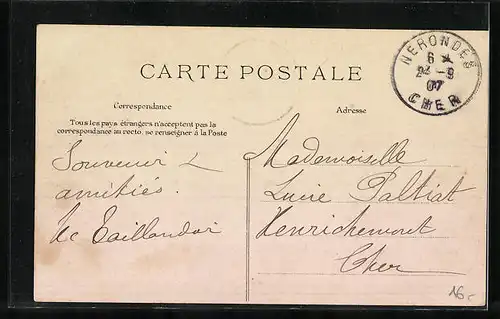 CARTE POSTALE
Correspondance
Tous les pays étrangers n'acceptent pas la
correspondance au recto, se renseigner à la Poste
Souvenir &
amitiés.
Taillandier
Adresse
Mademoiselle
Lucie Paltrat
Henrichemont
Cher
NERONDES
6
2 - 9
07
CHER
16